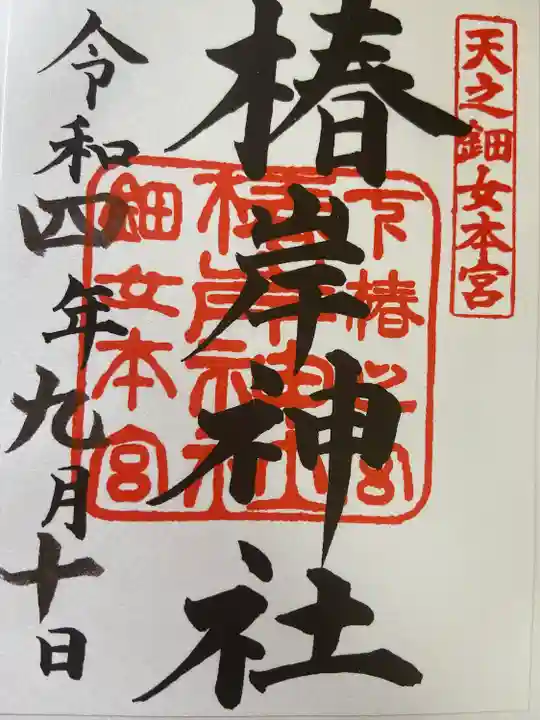 天之鈿女本宮
椿岸神社
下椿
椿岸神社
鈿女本宮
令和四年九月十日